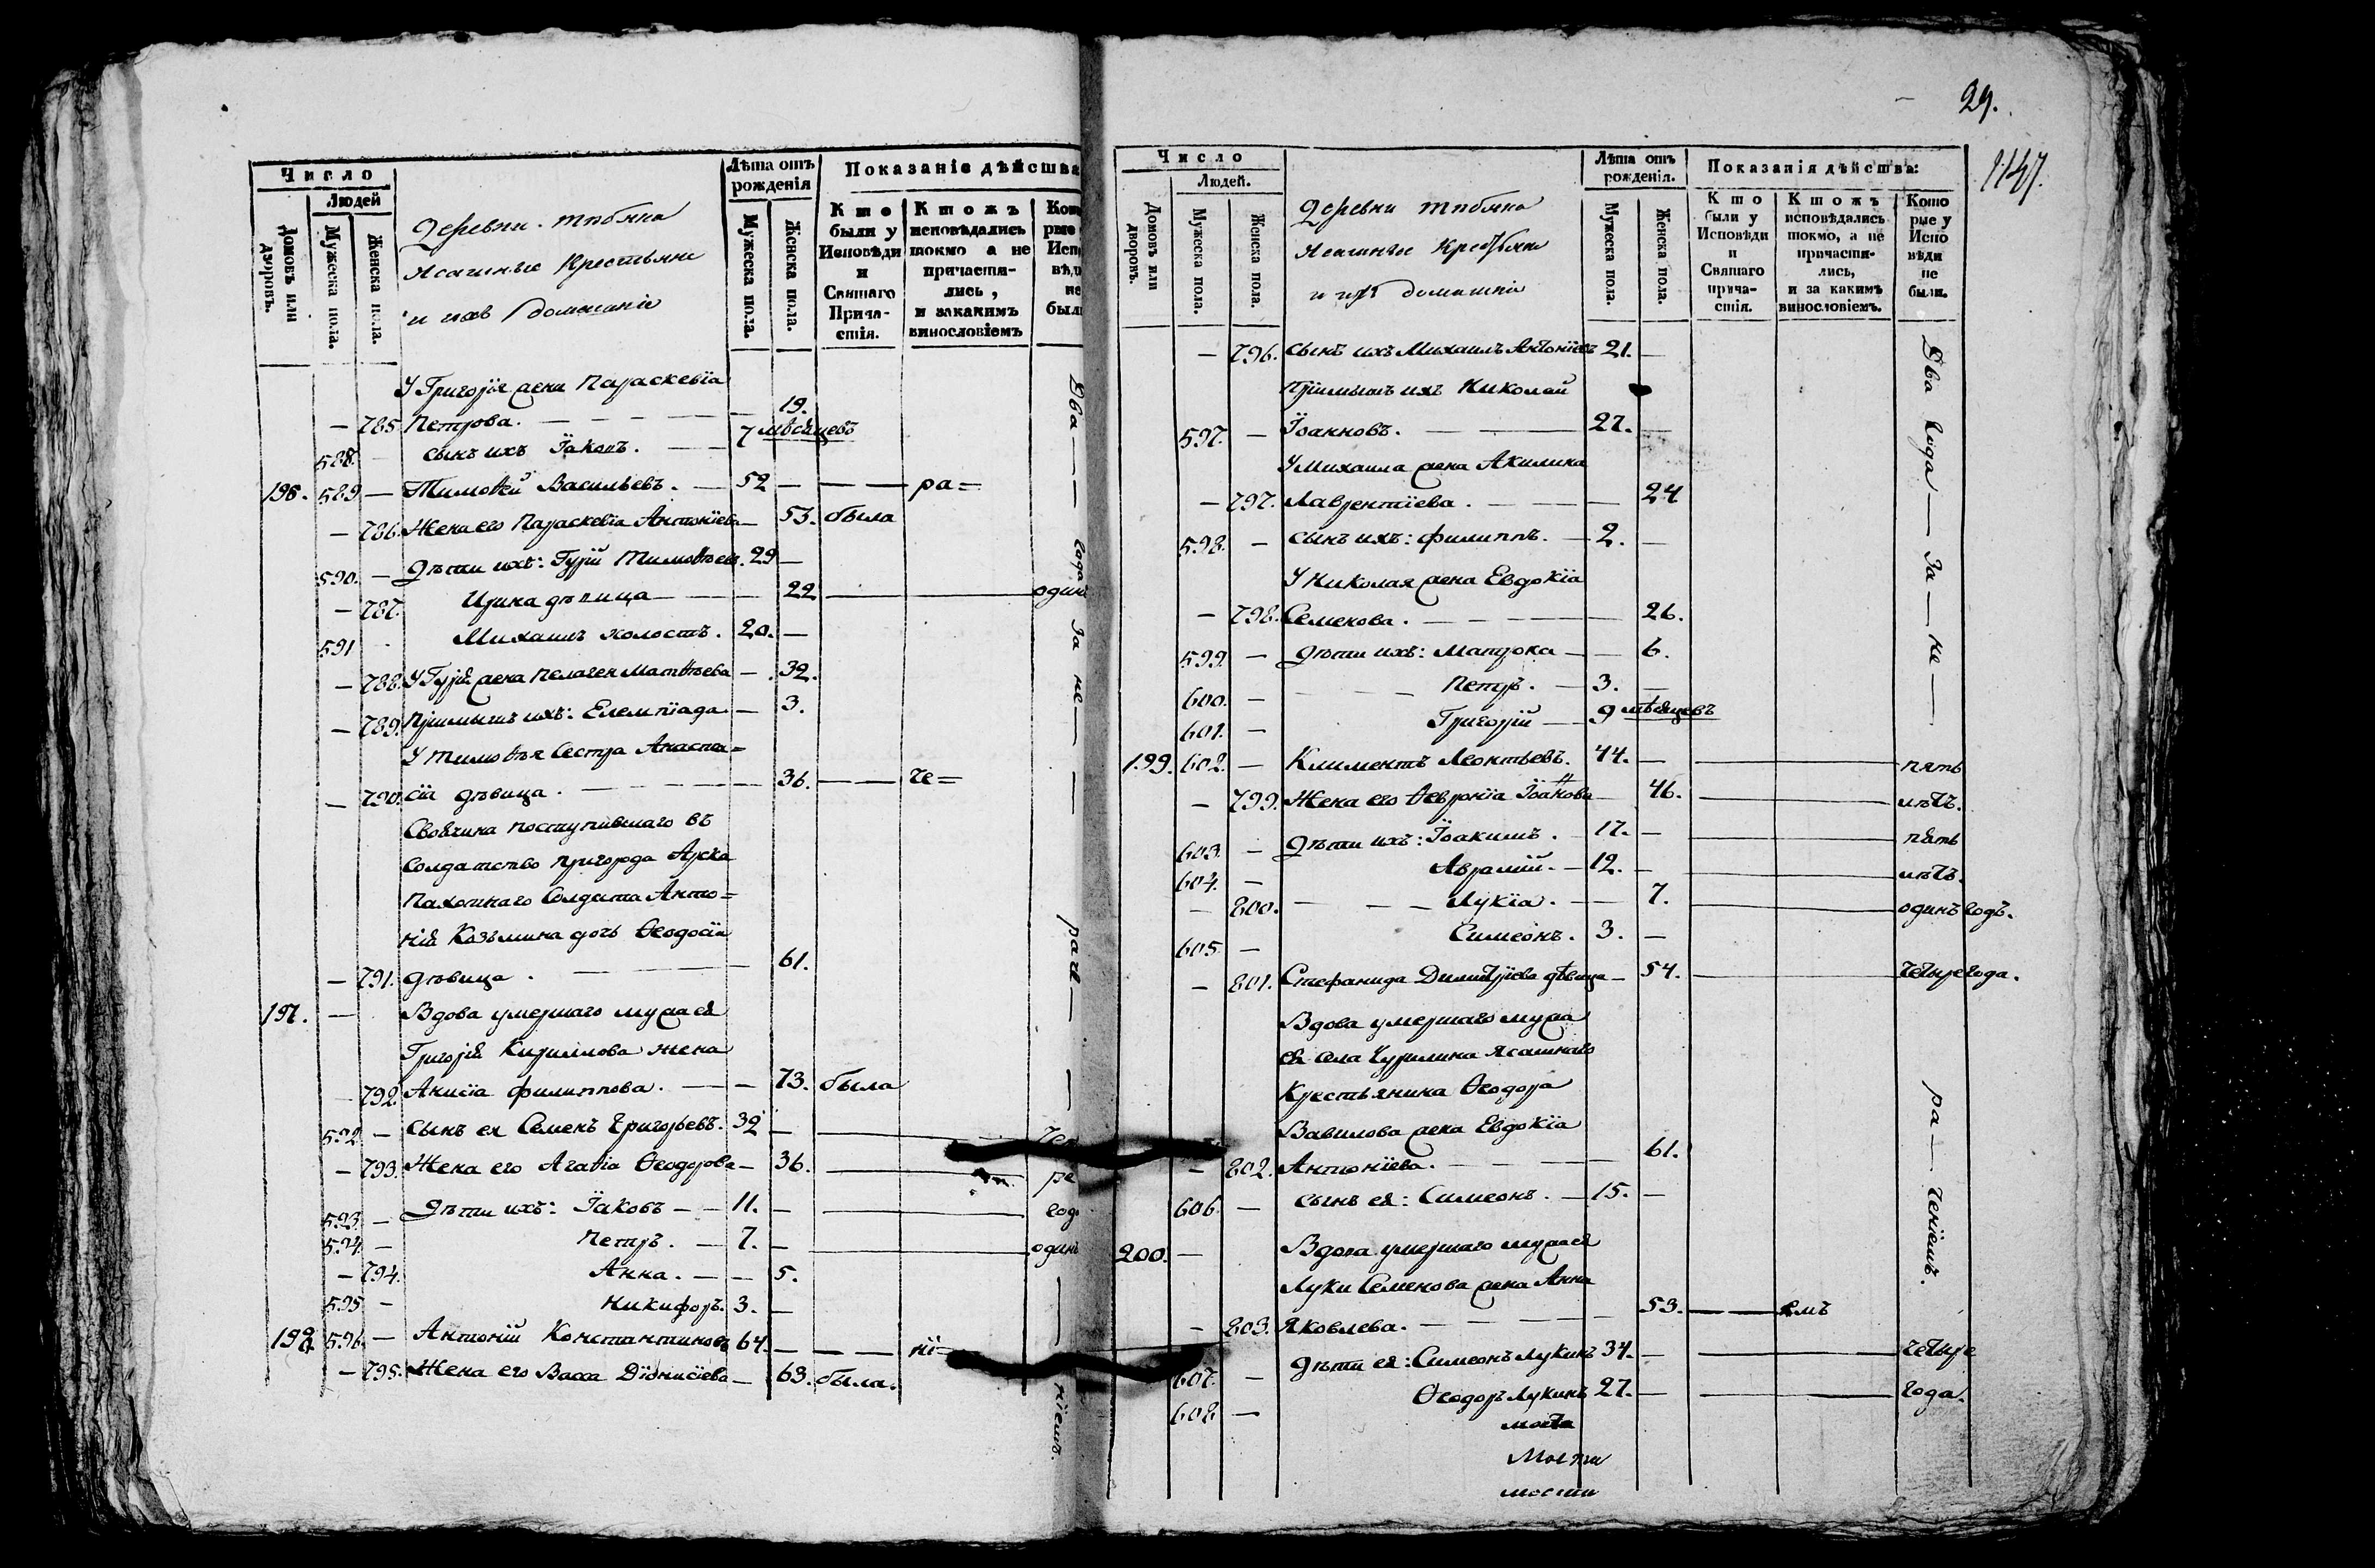 Число
Людей
Домовъ или дворовъ.
Мужеска пола.
Женска пола.
Деревни
Ясашные Крестьяне
и ихъ домашніе
Лѣта отъ рожденія
Мужеска пола.
Женска пола.
Показаніе дѣйства
Кто были у Исповѣди и Святаго Причастія.
Ктожъ исповѣдались токмо а не причастились, и закакимъ винословіемъ
У Григорія жена Параскевіа
— 785. Петрова. — 19.
588. — сынъ ихъ Іаковъ. — 7 мѣсяцевъ
196. 589 — Тимоѳей Васильевъ. — 52 — — ра=
— 786. Жена его Параскевіа Антоніева — 53. была
590. — Дѣти ихъ: Гурій Тимоѳеевъ. 29 —
— 787. Ирина дѣвица — 22 — один
591 - Михаилъ холостъ. 20. —
— 788. У Гурія жена Пелагея Матѳѣева — 32.
— 789. Пріимышъ ихъ: Елемпіада — 3.
У Тимоѳея Сестра Анаста=
— 790. сіа дѣвица. — 36. — че=
поступившаго въ
Солдатство пригорода Арска
Пахотнаго Солдата Анто=
нія Козьмина дочь Ѳеодосіа
— 791. дѣвица. — 61.
197. — Вдова умершаго мужа ея
Григорія Кириллова жена
— 792. Анисіа Филиппова. — 73. была
592. — Сынъ ея Семенъ Григорьевъ. 32 — Чет
— 793. Жена его Агаѳіа Ѳеодорова — 36. — ре
593. — Дѣти ихъ: Іаковъ — 11. — год
594. — Петръ. — 7. — один
— 794. Анна. — 5.
595 - Никифоръ. 3. —
198. 596. — Антоній Константиновъ 64. — — ні=
— 795. Жена его Васса Діонисіева — 63. была.
Два — года за не — раче — ніемъ.
29.
1147.
Число
Людей.
Домовъ или дворовъ.
Мужеска пола.
Женска пола.
Деревни
Ясашные Крестьяне
и ихъ домашніе
Лѣта отъ рожденія.
Мужеска пола.
Женска пола.
Показанія дѣйства:
Кто были у Исповѣди и Святаго причастія.
Ктожъ исповѣдались токмо, а не причастились, и за какимъ винословіемъ.
Которые у Исповѣди не были.
— 796. Сынъ ихъ Михаилъ Антоніевъ 21. —
Пріимышъ ихъ Николай
597. — Іоанновъ. — 27. —
У Михаила жена Акилина
— 797. Лаврентіева. — 24
598. — Сынъ ихъ: Филиппъ. — 2. —
У Николая жена Евдокіа
— 798. Семенова. — 26.
599. — Дѣти ихъ: Матрона — 6.
600. — Петръ. — 3. —
601. — Григорій — 9 мѣсяцевъ
199. 602. — Климентъ Леонтьевъ. 44. — пять
— 799. Жена его Ѳевроніа Іоаннова 46. — лѣтъ.
603. — Дѣти ихъ: Іоакимъ. — 17. — пять
604. — Аврамій. — 12. — лѣтъ.
— 800. Лукіа. — 7. — одинъ годъ.
605. — Симеонъ. 3. —
— 801. Стефанида Димитріева дѣвица — 54. — четыре года.
Вдова умершаго мужа
ея села Чурилина Ясашнаго
Крестьянина Ѳеодора
Вавилова жена Евдокіа
— 802. Антоніева. — 61.
606. — Сынъ ея: Симеонъ. — 15. —
200. — Вдова умершаго мужа ея
Луки Семенова жена Анна
— 803. Яковлева. — 53. — емъ
607. — Дѣти ея: Симеонъ Лукинъ 34. — четыре
608. — Ѳеодоръ Лукинъ 27. — года.
Два года — за — не — ра — ченіемъ.